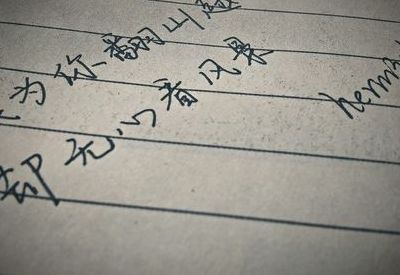 为你翻山越
却无心看风景